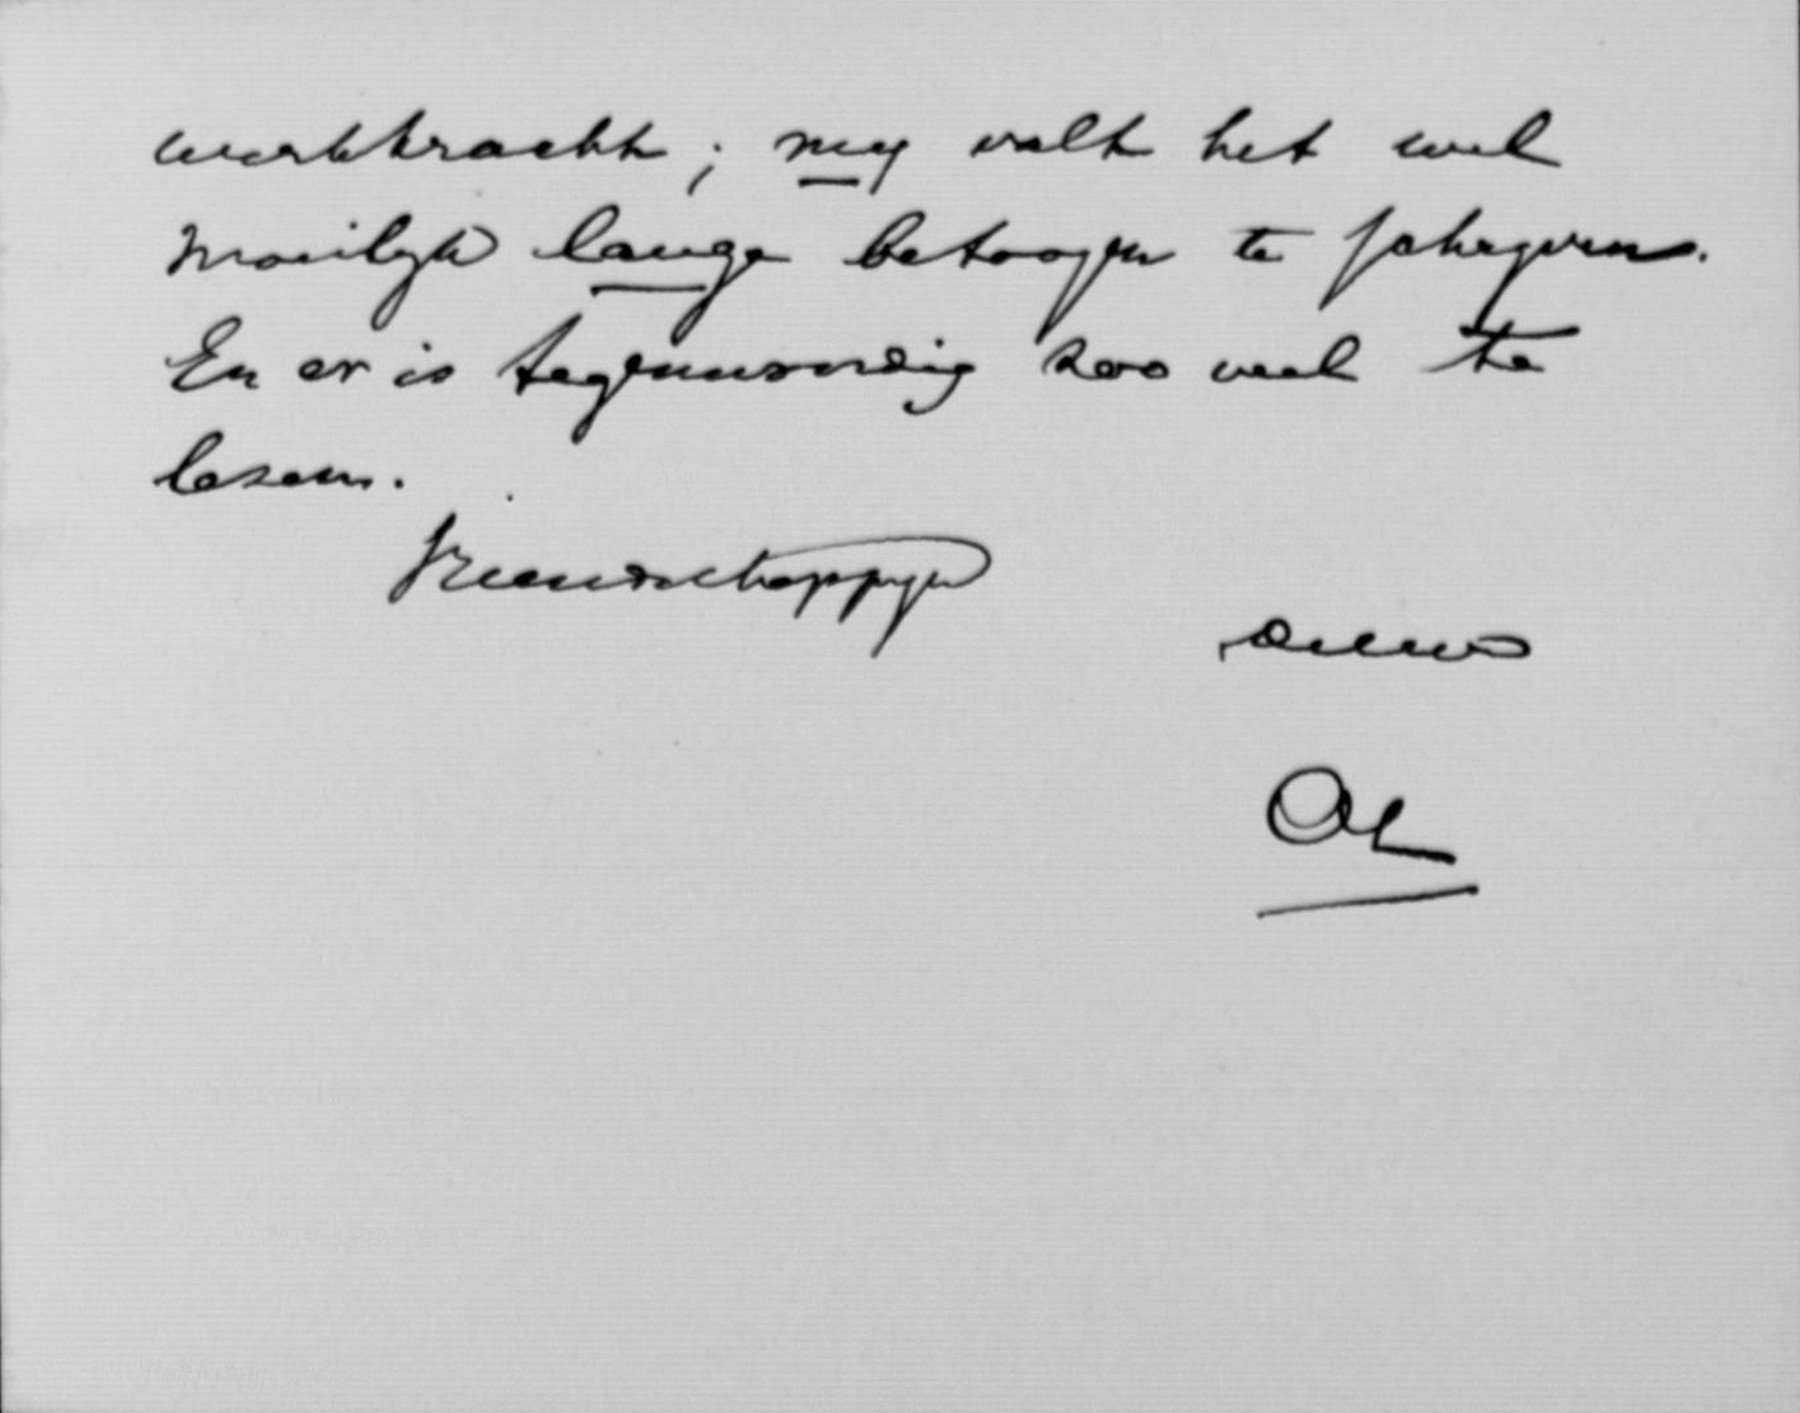 werkkracht; mij valt het wel
moeilijk lange betoogen te schrijven.
En er is tegenwoordig zoo veel te
lezen.
Vriendschappelijk